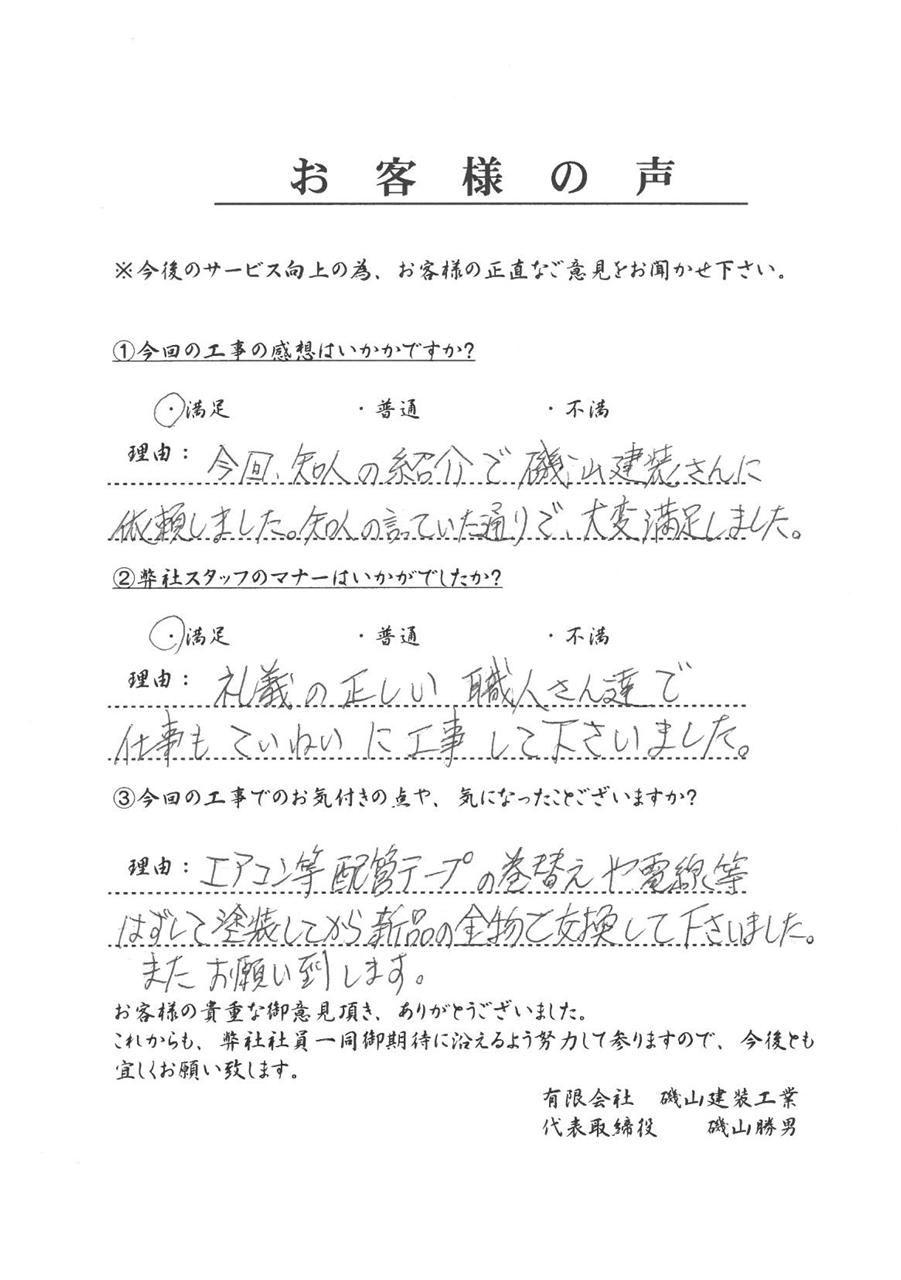 お客様の声
※今後のサービス向上の為、お客様の正直なご意見をお聞かせ下さい。
①今回の工事の感想はいかかですか?
・満足 ・普通 ・不満
理由：今回、知人の紹介で磯山建装さんに
依頼しました。知人の言っていた通りで、大変満足しました。
②弊社スタッフのマナーはいかがでしたか?
・満足 ・普通 ・不満
理由：礼義の正しい職人さん達で
仕事もていねいに工事して下さいました。
③今回の工事でのお気付きの点や、気になったことございますか?
理由：エアコン等配管テープの巻替えや電線等
はずして塗装してから新品の金物で交換して下さいました。
またお願い到します。
お客様の貴重な御意見頂き、ありがとうございました。
これからも、弊社社員一同御期待に沿えるよう努力して参りますので、今後とも
宜しくお願い致します。
有限会社 磯山建装工業
代表取締役 磯山勝男